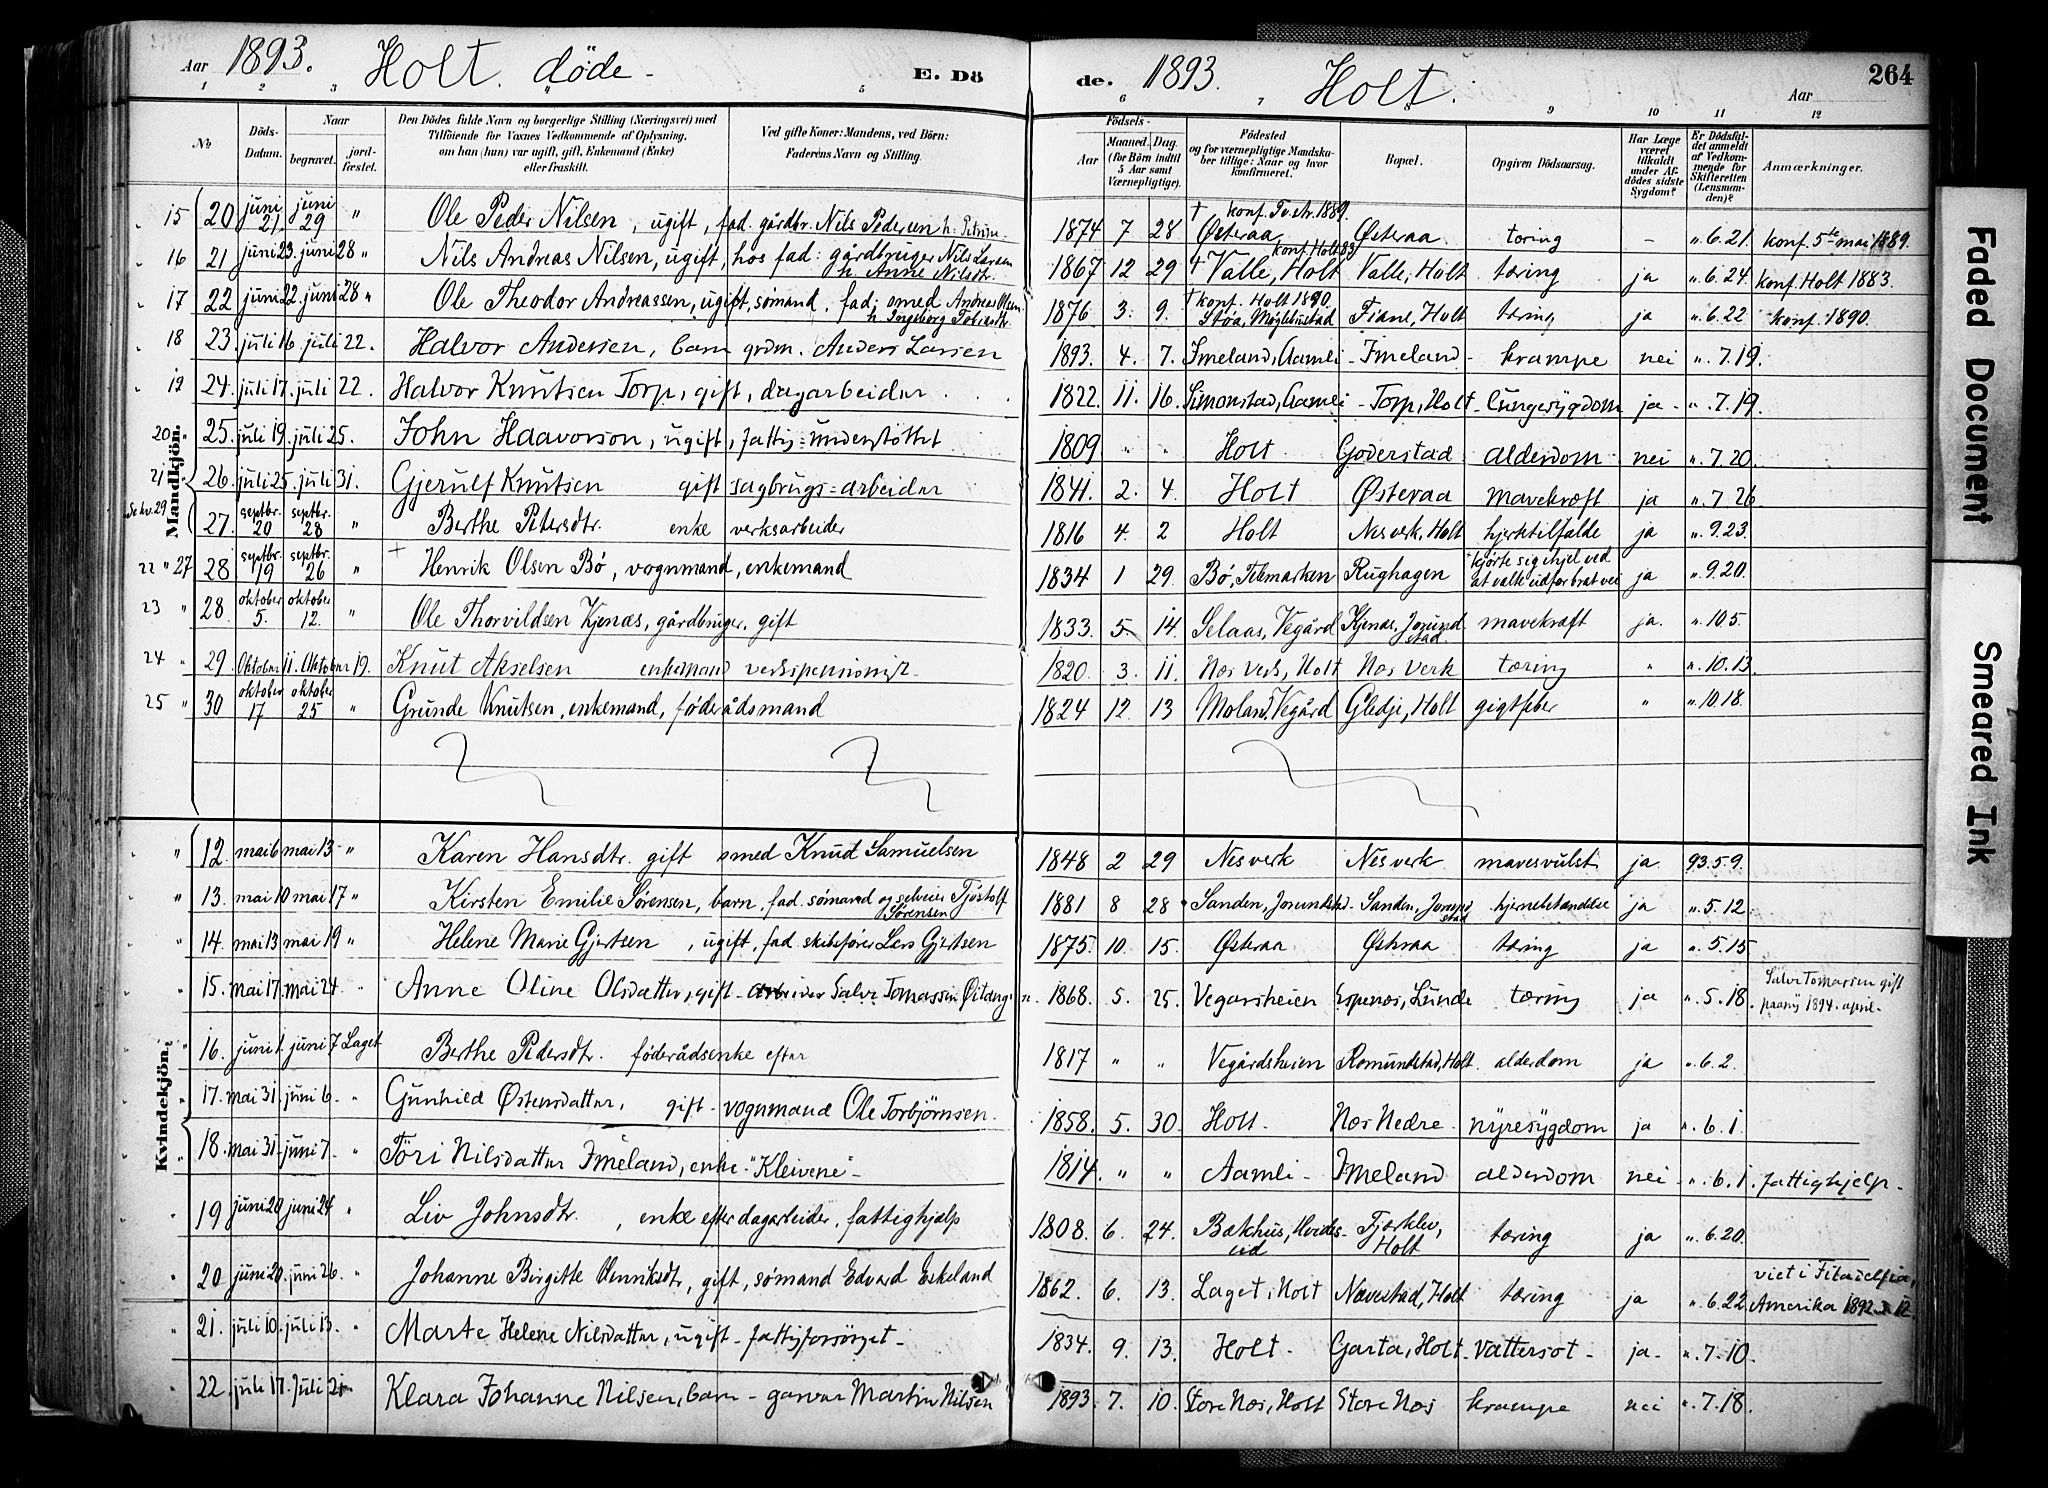 Aar 1893. Holt. døde - E. Dö
de. 1893. Holt. Aar 264
1 2 3 4 5 6 7 8 9 10 11 12
No Döds-Datum. Naar begravet. jord-fæstet. Den Dödes fulde Navn og borgerlige Stilling (Næringsvei) med Tilföiende for Voxnes Vedkommende af Oplysning, om han (hun) var ugift, gift, Enkemand (Enke) eller fraskilt. Ved gifte Koner: Mandens, ved Börn: Faderens Navn og Stilling.
Födsels- Aar Maaned. Dag. (for Börn indtil 5 Aar samt Værnepligtige). Födested og for værnepligtige Mandskaber tillige: Naar og hvor konfirmeret. Bopæl. Opgiven Dödsaarsag. Har Læge været tilkaldt under Afdödes sidste Sygdom? Er Dödsfaldet anmeldt af Vedkommende for Skifteretten (Lensmanden)? Anmærkninger.
Mandkjön.
15 20 juni 21. juni 29 " Ole Peder Nilsen, ugift, fad. gårdbr. Nils Pedersen 1874 7 28 † konf. Tv.str. 1889. Østeraa Østeraa tæring - ". 6. 21. konf. 5te mai 1889.
16 21 juni 23. juni 28 " Nils Andreas Nilsen, ugift, hos fad: gårdbruger Nils Larsen h. Anne Nilsdtr. 1867 12 29 konf. Holt 83 † Valle, Holt Valle, Holt tæring ja ". 6. 24. konf. Holt 1883.
17 22 juni 22. juni 28 " Ole Theodor Andreassen, ugift, sømand. fad: smed Andreas Olsen h Ingeborg Tobiasdtr. 1876 3. 9. † konf. Holt 1890. Støa, Møglebustad Fiane, Holt tæring ja ". 6. 22 konf. 1890.
18 23. juli 16. juli 22. Halvor Andersen, barn grdm. Anders Larsen 1893. 4. 7. Imeland, Aamli - Imeland - krampe nei ". 7. 19.
19 24. juli 17. juli 22. Halvor Knutsen Torp, gift, dagarbeider 1822. 11. 16. Simonstad, Aamli - Torp, Holt - lungesygdom ja - ". 7. 19.
20 " 25. juli 19. juli 25. John Haavorson, ugift, fattig-understøttet 1809 " " Holt Goderstad alderdom nei ". 7. 20.
21 26. juli 25. juli 31. Gjerulf Knutsen gift sagbrugs-arbeider 1841. 2. 4. Holt Østeraa mavekræft ja ". 7. 26.
27. septbr. 20 septbr. 28 " Berthe Petersdtr. enke verksarbeider 1816 4. 2 Holt Nesverk, Holt hjertetilfælde ja ". 9. 23.
22 " 27 28 septbr. 19 septbr. 26 " + Henrik Olsen Bø, vognmand, enkemand 1834 1 29. Bø, Telemarken Rughagen kjørte sig ihjel ved at vælte udfor brat vei ja ". 9. 20.
23 " 28. oktober 5. oktober 12. " Ole Thorvildsen Kjenas, gårdbruger, gift 1833. 5. 14. Selaas, Vegård Kjenas, Jorundstad mavekræft ja. ". 10 5.
24 " 29. Oktober 11. Oktober 19. Knut Akselsen enkemand verkspensionist. 1820. 3. 11. Næs Verk, Holt Næs Verk tæring " ". 10. 13.
25 " 30 oktober 17 oktober 25 " Grunde Knutsen, enkemand, føderådsmand 1824 12. 13 Moland, Vegård Gledje, Holt gigtfeber " ". 10. 18.
Kvindekjön.
" 12. mai 6 mai 13 " Karen Hansdtr. gift smed Knud Samuelsen 1848 2 29 Nesverk Nesverk mavesvulst ja. 93. 5. 9.
" 13. mai 10 mai 17 " Kirsten Emilie Sørensen, barn, fad. sømand og selveier Tjøstolf Sørensen 1881 8 28 Sanden, Jorundstad - Sanden, Jorundstad hjernebetændelse ja ". 5. 12.
" 14. mai 13 mai 19 " Helene Marie Gjertsen, ugift, fad. skibsfører Lars Gjertsen 1875. 10. 15. Østeraa Østeraa tæring ja ". 5. 15
" 15. mai 17. mai 24 " Anne Oline Olsdatter, gift - arbeider Salve Tomassen 1868. 5. 25. Vegarsheien Espenes, Lunde tæring ja ". 5. 18. Salve Tomassen gift paany 1894. april -
16. juni 1. juni 7 Laget Berthe Pedersdtr. føderådsenke efter 1817 " " Vegårdsheien Romundstad, Holt alderdom ja ". 6. 2.
17. mai 31 juni 6. " Gunhild Østensdatter, gift - vognmand Ole Torbjørnsen. 1858. 5. 30. Holt. Næs Nedre. nyresygdom ja ". 6. 1.
18. mai 31 juni 7. " Töri Nilsdatter Imeland, enke - "Kleivene" - 1814. " " Aamli - Imeland alderdom nei - ". 6. 1. fattighjelp -
19 juni 20 juni 24 " Liv Johnsdtr., enke efter dagarbeider, fattighjælp 1808. 6. 24. Bakhus, Hvideseid Tjærklev, Holt tæring ja ". 6. 20.
20 juni 20. juni 26. " Johanne Birgitte Henriksdtr, gift, sømand Edvard Eskeland 1862. 6. 13. Laget, Holt Nævestad, Holt tæring ja ". 6. 22. viet i Filadelfia, Amerika 1892
" 21. juli 10. juli 13. " Marte Helene Nilsdatter, ugift - fattigforsørget - 1834. 9. 13. Holt - Garta, Holt - Vattersot - ja - ". 7. 10.
" 22. juli 17. Juli 21. Klara Johanne Nilsen, barn - garver Martin Nilsen 1893. 7. 10. Store Næs, Holt Store Næs krampe nei ". 7. 18.
Faded Document
Smeared Ink